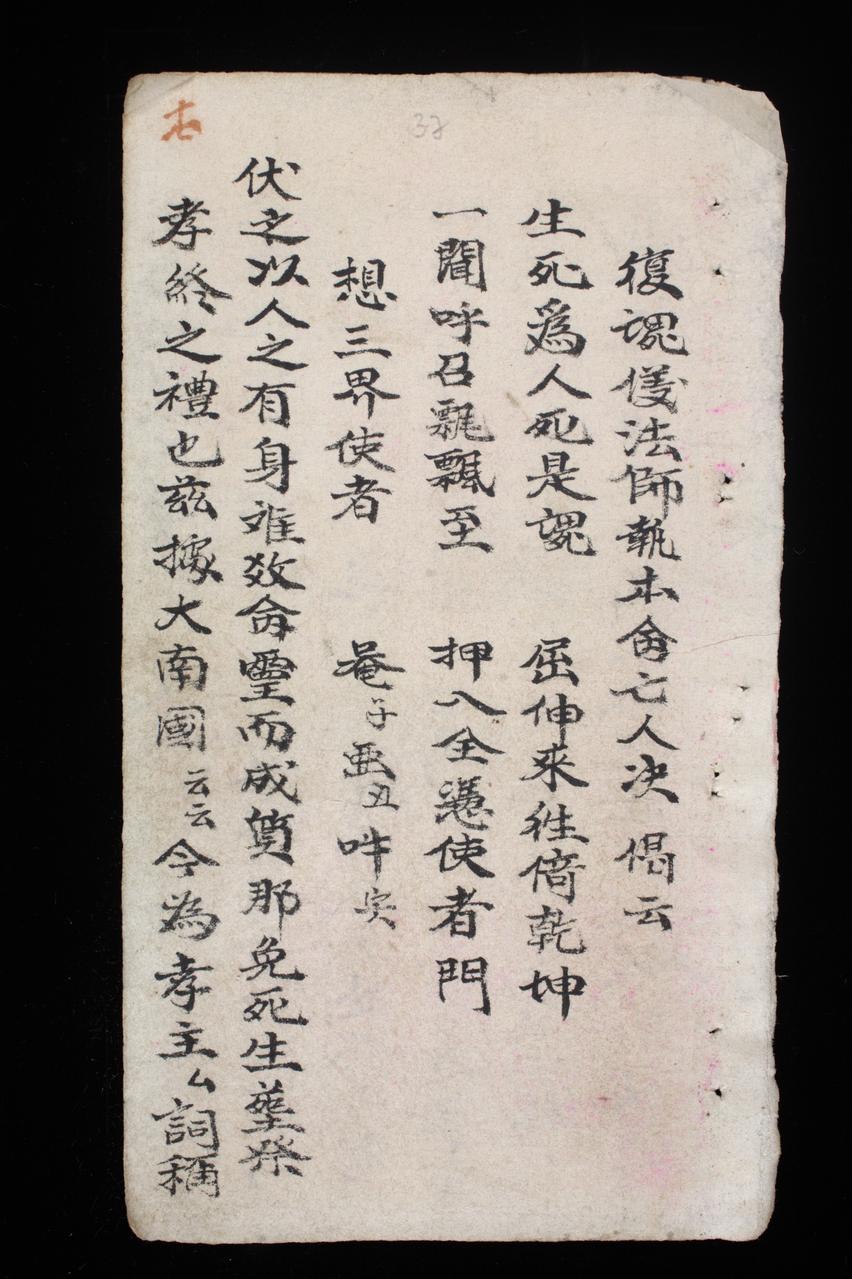 復魂儀法師執本命亡人决 偈云
生死爲人死是魂 屈伸來往倚乾坤
一聞呼召飄飄至 押入全憑使者門
想三界使者 菴子亜丑吽矣
伏之以人之有身难效命靈而成質那免死生葬祭
孝終之禮也兹據大南國云云今為孝主厶詞稱
37